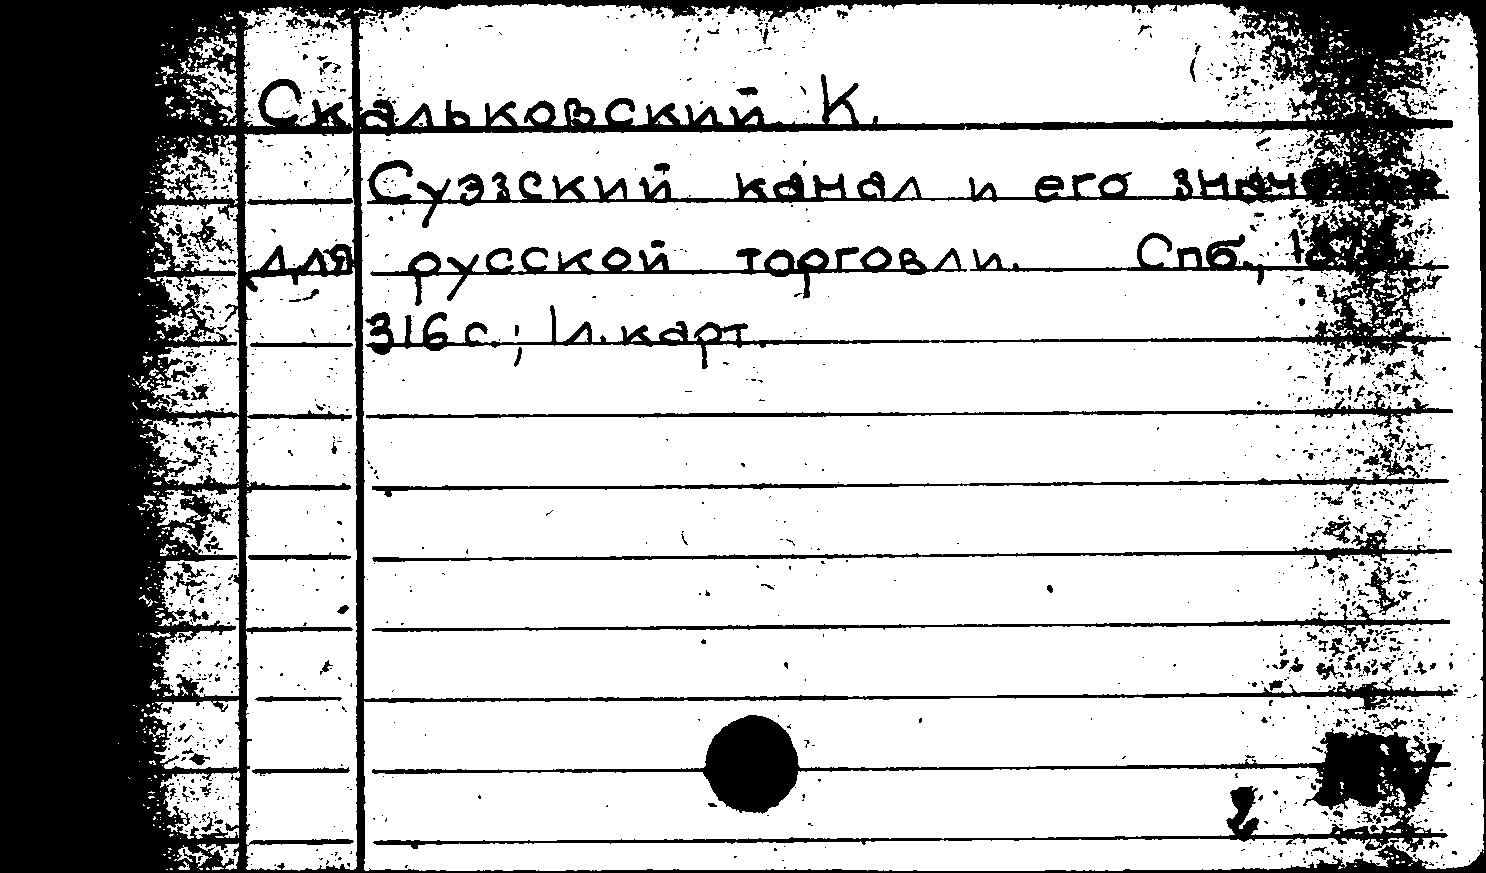 Скальковский К.
Суэзский канал и его значение
для русской торговли. Спб.,
316 с.; 1 л. карт.